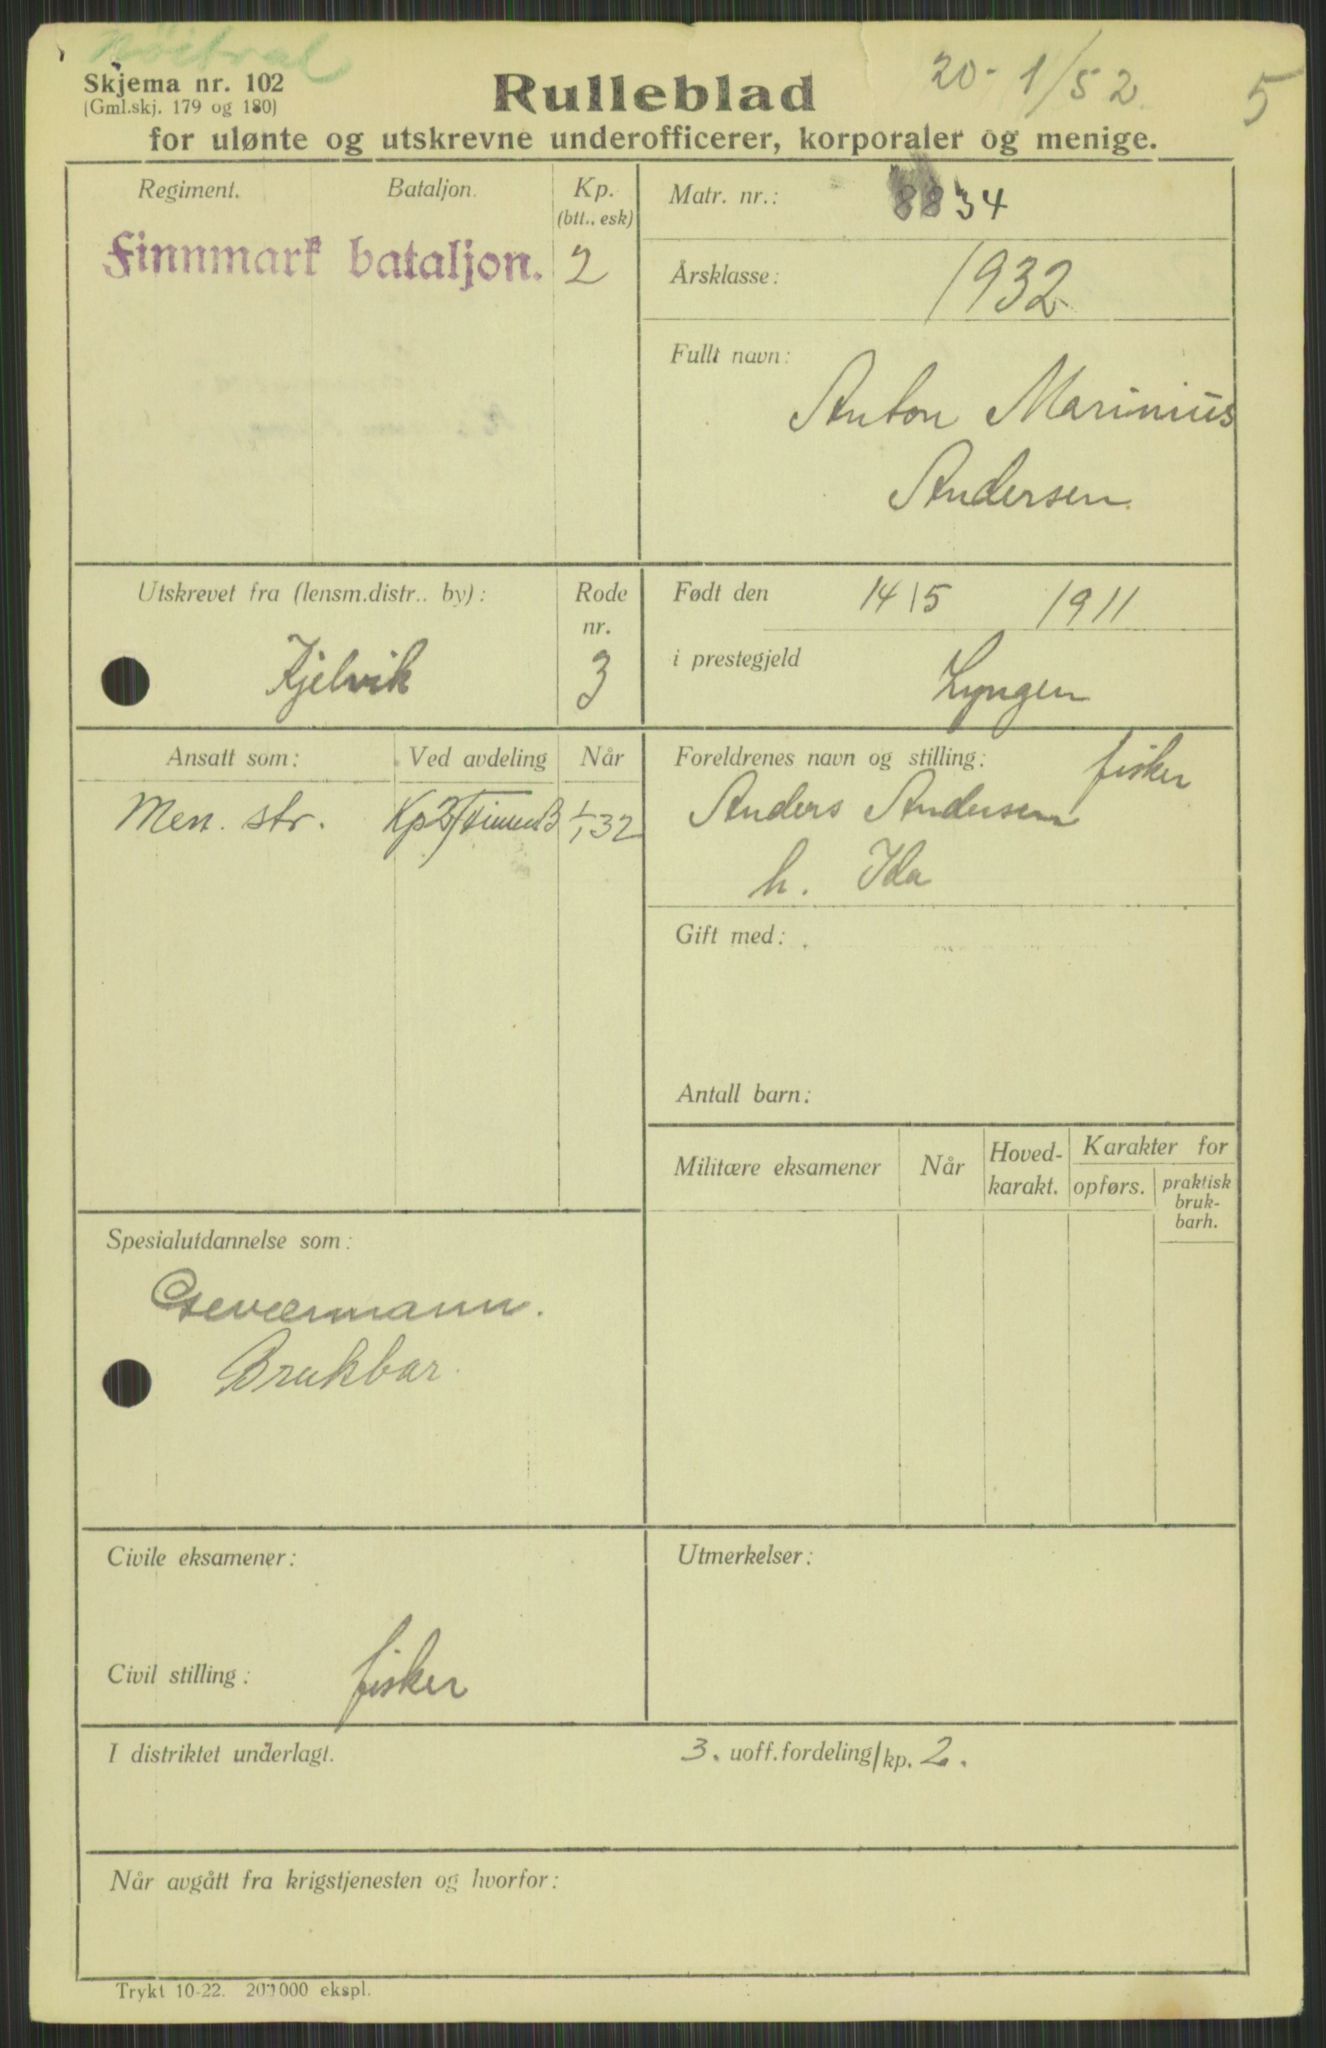 Skjema nr. 102
(Gml.skj. 179 og 180)
Rulleblad
20-1/52
5
for ulønte og utskrevne underofficerer, korporaler og menige.
Regiment. Bataljon. Kp. (btt., esk)
Finnmark bataljon. 2
Matr. nr.: 8834
Årsklasse: 1932
Fullt navn:
Anton Marinius
Andersen
Utskrevet fra (lensm.distr.. by): Rode nr.
Kjelvik 3
Født den 14/5 1911
i prestegjeld Lyngen
Ansatt som: Ved avdeling Når
Men. str. 1/1 32
Foreldrenes navn og stilling: fisker
Anders Andersen
h. Ida
Gift med:
Antall barn:
Militære eksamener Når Hoved-karakt. Karakter for
opførs. praktisk bruk-barh.
Spesialutdannelse som:
Geværmann.
Brukbar.
Civile eksamener:
Utmerkelser:
Civil stilling: fisker
I distriktet underlagt. 3. uoff.fordeling/kp. 2.
Når avgått fra krigstjenesten og hvorfor:
Trykt 10-22. 200000 ekspl.